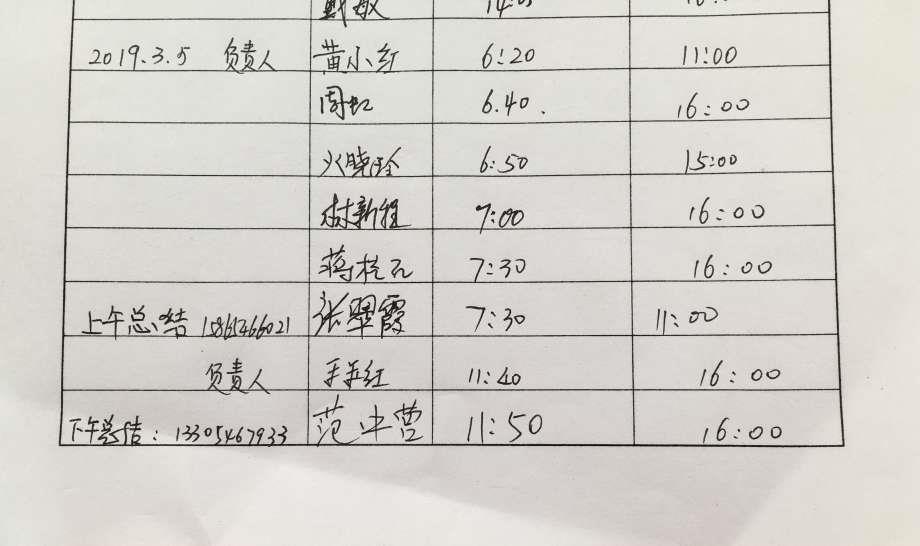 2019.3.5 负责人 黄小红 6:20 11:00
周虹 6.40. 16:00
晓玲 6:50 15:00
新程 7:00 16:00
蒋 7:30 16:00
上午总结 张翠霞 7:30 11:00
负责人 红 11:40 16:00
下午总结: 13305467933 范中 11:50 16:00